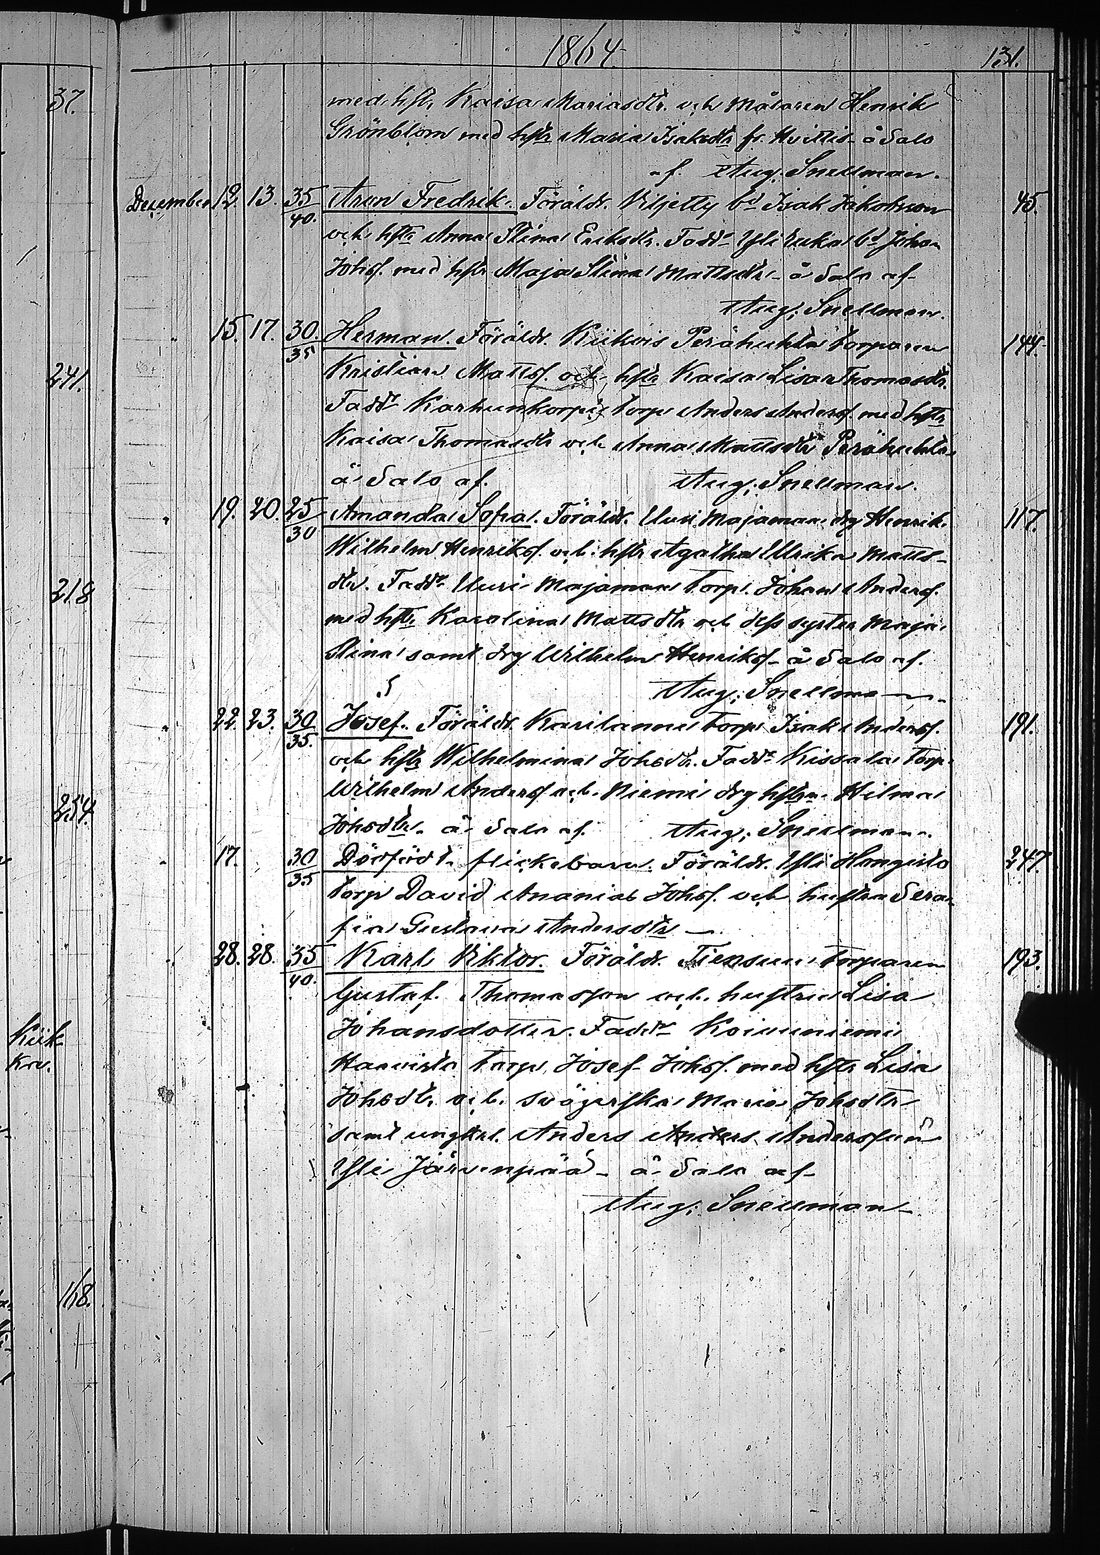 1864.
131.
37.
med hstr Kaisa Mariasdtr. och Målaren Henrik
Grönblom med hstr Maria Isaksdtr fr. Hvittis å Salo
af. Aug. Snellman.
December 12. 13. 35/40. Aron Fredrik. Föräldr. Viljetty bd Isak Jakobsson 45.
och hstr Anna Stina Eriksdtr. Fadd. Yli bd Johan
Johsf. med hstr Maja Stina Mattsdtr å Salo af
Aug. Snellman.
15. 17. 30/35 Herman. Föräldr. Kiikois Perähuhta torparen 144.
241.
Kristian Mattsf. och hstr Kaisa Lisa Thomasdtr.
Fadd. Karhunkorpi torp. Anders Andersf. med hstr
Kaisa Thomasdtr och Anna Mattsdtr Perähuhta
å Salo af. Aug. Snellman.
19. 20. 25/30 Amanda Sofia. Föräldr. Uusi Majamaa drg Henrik 117.
Wilhelm Henriksf. och hstr Agatha Ulrika Matts-
218
dtr. Fadd. Uusi Majamaa torp. Johan Andersf.
med hstr Karolina Mattsdtr och dess syster Maja
Stina samt drg Wilhelm Henriksf. å Salo af.
Aug. Snellman
22. 23. 30/35. Josef. Föräldr. torp. Isak Andersf. 191.
och hstr Wilhelmina Johsdtr. Fadd. Kissala torp.
254.
Wilhelm Andersf och Niemi drg hstrn Hilma
Johsdtr. å Salo af. Aug. Snellman.
17. 30/35 Dödfödt flickebarn. Föräldr. Yli Hongisto 247.
torp David Ananias Johsf. och hustru Sera-
fia Gustava Andersdtr
28. 28. 35/40. Karl Viktor. Föräldr. Tiensuu torparen 193.
Gustaf Thomasson och hustru Lisa
Johansdotter. Fadd. Koivuniemi
Kiik-
torp. Josef Johsf. med hstr Lisa
ka.
Johsdtr. och svägerska Maria Johsdtr
samt ungkarl. Anders Anders Andersson
Yli Järvenpää å Salo af
Aug. Snellman
168.